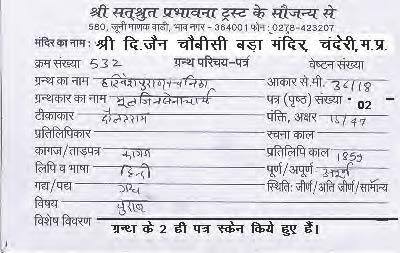 श्री सत्श्रुत प्रभावना ट्रस्ट के सौजन्य से
580, जूनी माणक वाडी, भाव नगर - 364001 फोन : 0278-423207
मंदिर का नाम : श्री दि. जैन चौबीसी बड़ा मंदिर, चंदेरी, म.प्र.
क्रम संख्या 532 ग्रन्थ परिचय-पत्र वेष्टन संख्या
ग्रन्थ का नाम हरिवंशपुराण वचनिका आकार से.मी. 36/18
ग्रन्थकार का नाम मूल जिनसेनाचार्य पत्र (पृष्ठ) संख्या 02
टीकाकार दौलतराम पंक्ति, अक्षर 15/47
प्रतिलिपिकार रचना काल
कागज/ताड़पत्र कागज प्रतिलिपि काल 1859
लिपि व भाषा हिन्दी पूर्ण/अपूर्ण अपूर्ण
गद्य/पद्य गद्य स्थिति: जीर्ण/अति जीर्ण/सामान्य
विषय पुराण
विशेष विवरण ग्रन्थ के 2 ही पत्र स्केन किये हुए हैं।